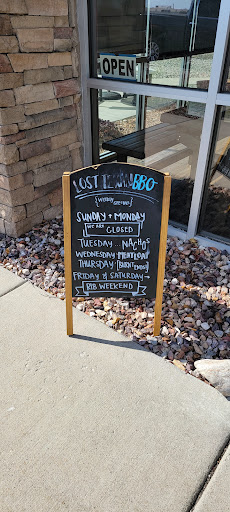 OPEN
LOST TEXAN BBQ
{WEEKLY SPECIALS}
SUNDAY + MONDAY
WE ARE CLOSED
TUESDAY... NACHOS
WEDNESDAY: MEATLOAF
THURSDAY: BURNT ENDS
FRIDAY & SATURDAY →
RIB WEEKEND